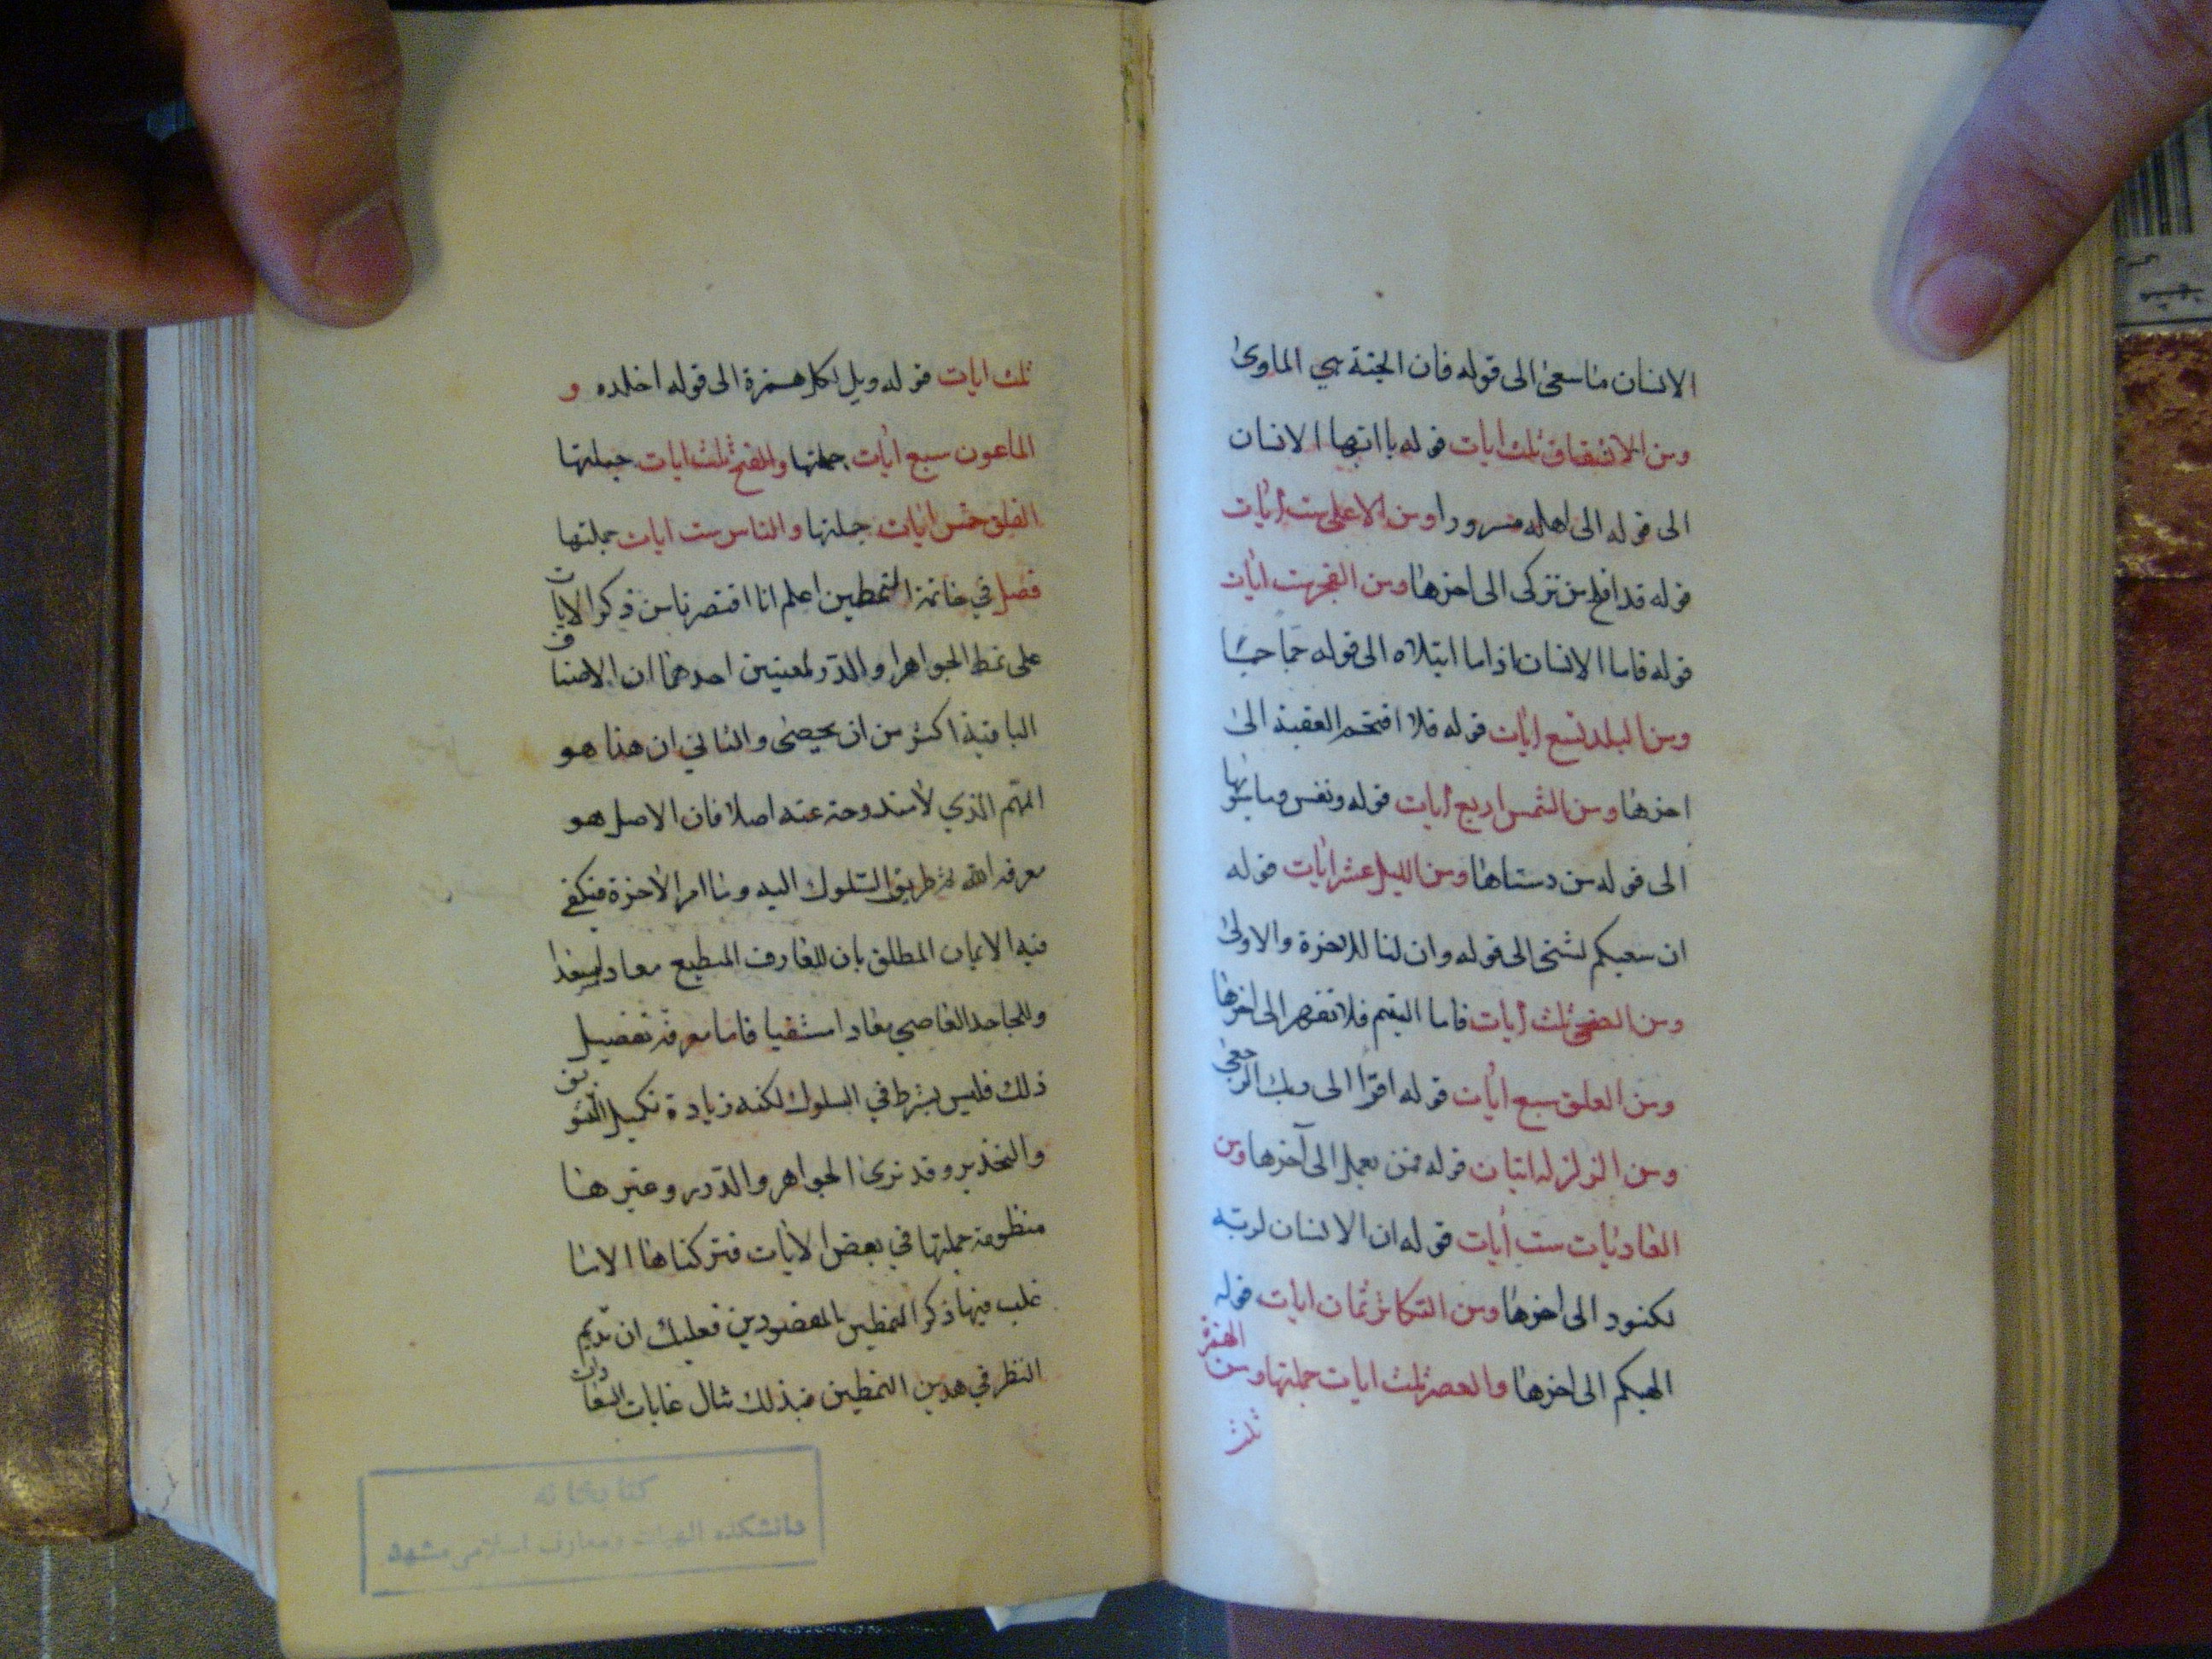 الانسان ما سعى الى قوله فان الجنة هي الماوى
ومن الانشقاق ثلث ايات قوله يا ايها الانسان
الى قوله الى اهله مسرورا ومن الاعلى ست ايات
قوله قد افلح من تزكى الى اخرها ومن الفجر ست ايات
قوله فاما الانسان اذا ما ابتلاه الى قوله حبا جما
ومن البلد تسع ايات قوله فلا اقتحم العقبة الى
اخرها ومن الشمس اربع ايات قوله ونفس وما سويها
الى قوله من دساها ومن الليل عشر ايات قوله
ان سعيكم لشتى الى قوله وان لنا للاخرة والاولى
ومن الضحى ثلث ايات فاما اليتيم فلا تقهر الى اخرها
ومن العلق سبع ايات قوله اقرا الى ربك الرجعى
ومن الزلزله ايتان قوله فمن يعمل الى آخرها ومن
العاديات ست ايات قوله ان الانسان لربه
لكنود الى اخرها ومن التكاثر ثمان ايات قوله
الهيكم الى اخرها والعصر ثلث ايات جملتها ومن الهمزة
ثلث
ثلث ايات قوله ويل لكل همزة الى قوله اخلده و
الماعون سبع ايات جملتها والفتح ثلث ايات جملتها
الفلق خمس ايات جملتها والناس ست ايات جملتها
فصل في خاتمة النمطين اعلم انا اقتصرنا من ذكر الايات
على نمط الجواهر والدرر لمعنيين احدهما ان الاصناف
الباقية اكثر من ان يحصى والثاني ان هذا هو
المهم الذي لا مندوحة عنه اصلا فان الاصل هو
معرفة الله ثم طريق السلوك اليه واما امر الاخرة فيكفي
فيه الايمان المطلق بان للعارف المطيع معادا مسعدا
وللجاحد العاصي معادا مشقيا فاما معرفة تفصيل
ذلك فليس بشرط في السلوك لكنه زيادة تكميل للتشويق
والتحذير وقد نرى الجواهر والدرر وغيرها
منظومة جملتها في بعض الايات فتركناها الا ما
غلب فيها ذكر النمطين المقصودين فعليك ان تديم
النظر في هذين النمطين فبذلك تنال غايات السعادات
كتابخانه
دانشكده الهيات ومعارف اسلامى مشهد